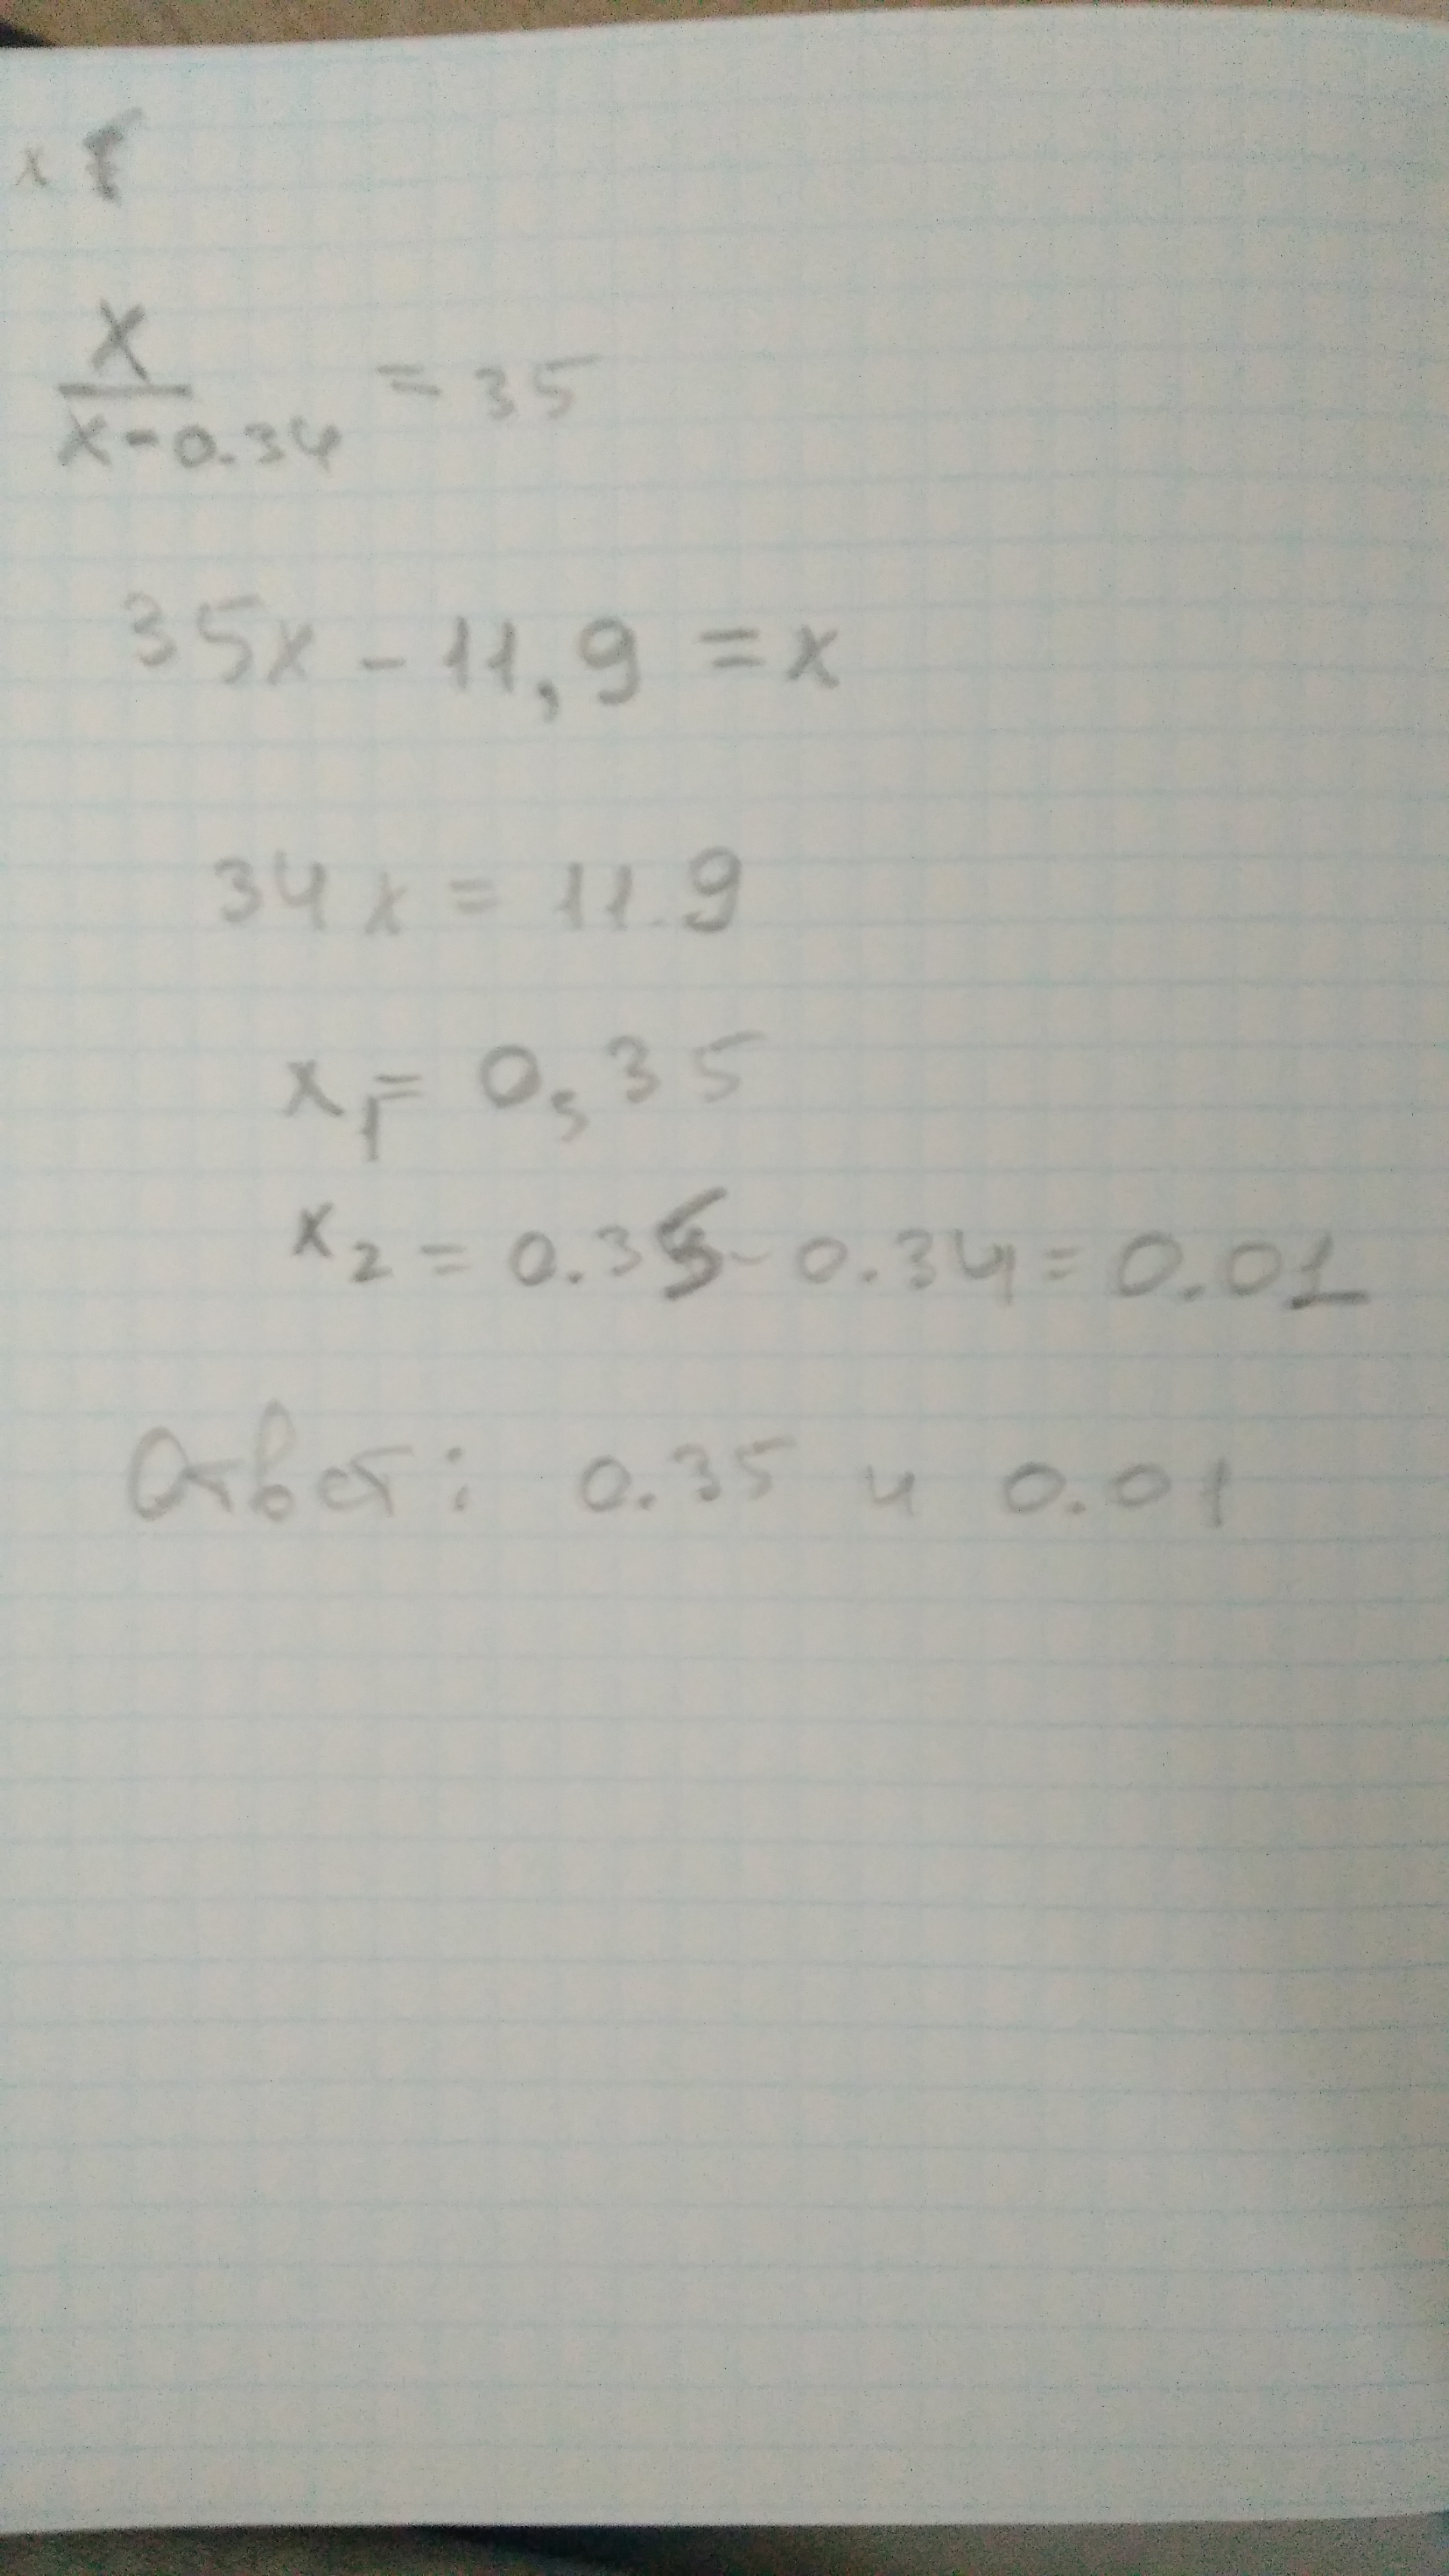 x
x
x-0.34 = 35
35x - 11,9 = x
34x = 11.9
x1 = 0,35
x2 = 0.35 - 0.34 = 0.01
Ответ: 0.35 и 0.01